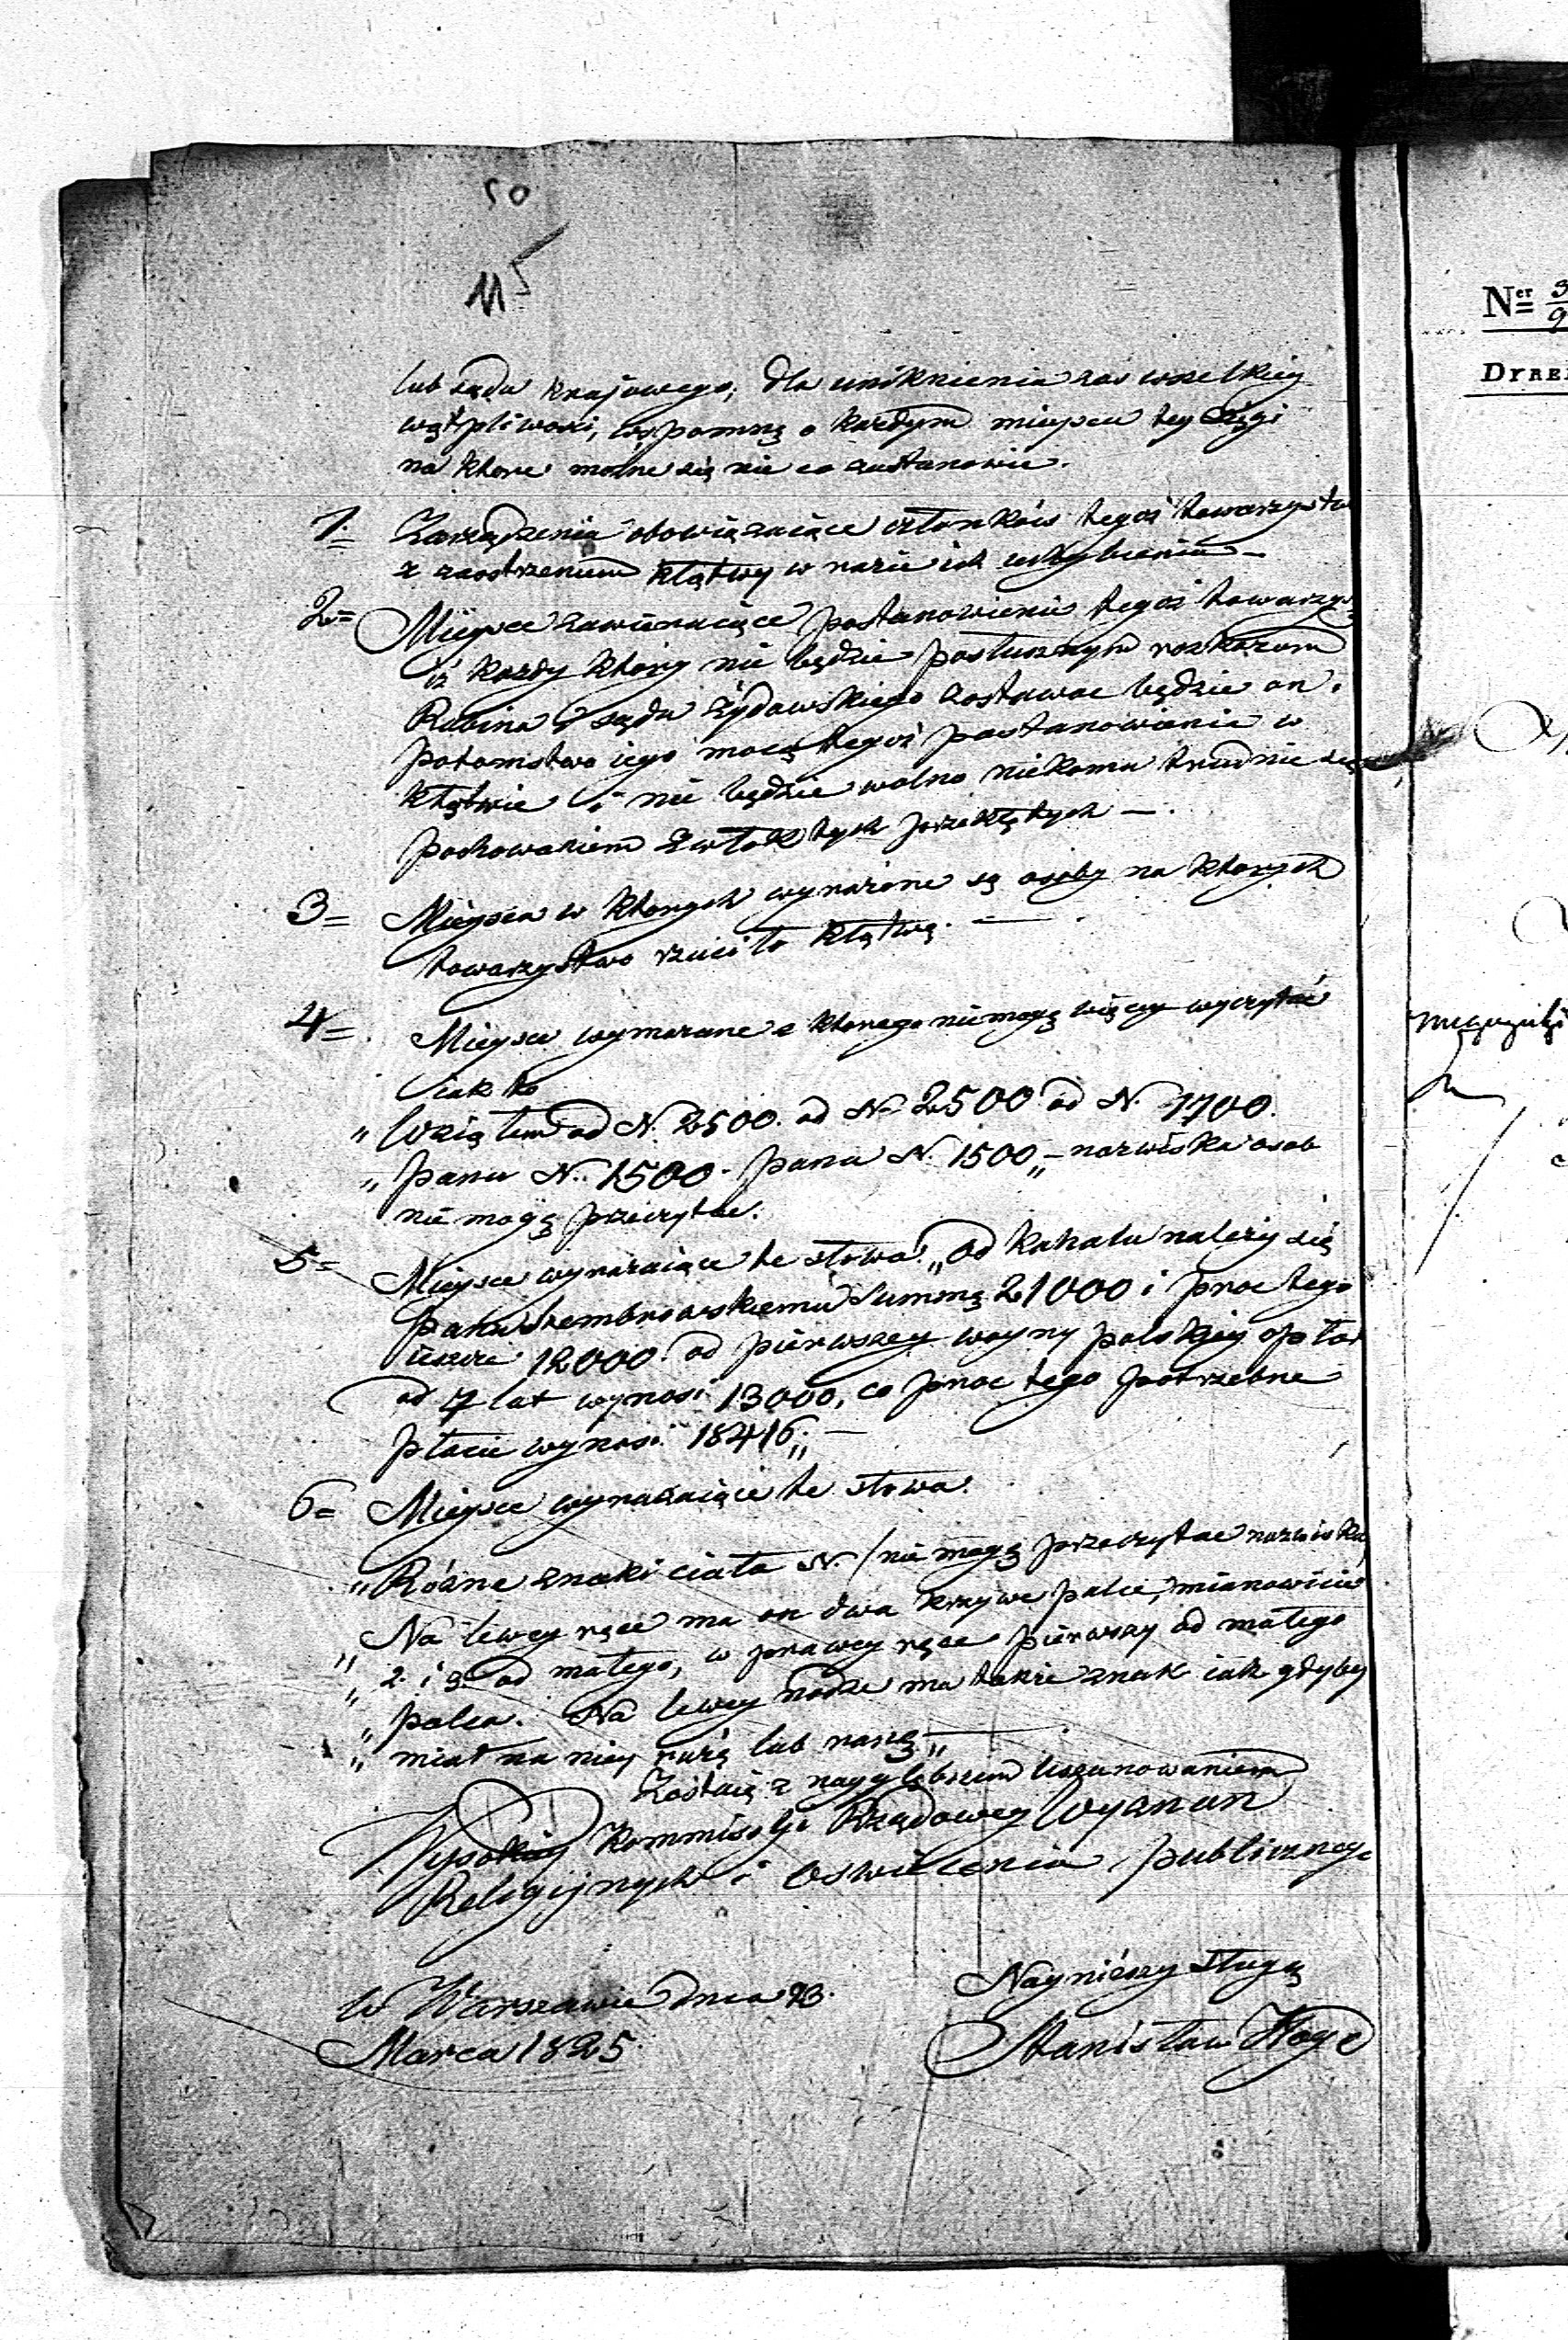 50
115
lub sądu krajowego, dla uniknienia zas wszelkiey
wątpliwosci, wspomnę o każdym mieyscu tey xsięgi
na ktore można się nie co zastanowic.
1. Zarządzenia obowiązuiące członków tegoż towarzystw
z zaostrzeniem klątwy w razie ich uchybienia —
2 = Mieysce zawieraiące postanowienie tegoż towarzys
iż kazdy który nie będzie posłusznym rozkazom
Rabina i sądu żydowskiego zostawac będzie on i
potomstwo iego mocą tegoż postanowienia w
klątwie i nie będzie wolno nikomu trudnic się
pochowaniem zwłok tych przeklętych —.
3 = Mieysca w ktorych wyrażone są osoby na ktorych
towarzystwo rzuciło klątwę. —
4 = Mieysce wymazane z ktorego niemogę więcey wyczytać
iak to
„ Wziąłem od N. 2500. od N. 2500 od N. 7700.
„ panu N. 1500. panu N. 1500 „ — nazwiska osob
nie mogę przeczytac.
5 = Mieysce wyrażaiące te słowa. „ Od kahału należy się
panu Dembrowskiemu Summa 21000 i procz tego
ieszcze 12000. od pierwszey woyny polskiey
od 7 lat wynosi 13000, co procz tego potrzebne
płacic wynosi 18416 „ —
6 = Mieysce wyrażaiące te słowa.
„ Różne znaki ciała N. / nie mogę przeczytac nazwiska /
„ Na lewey ręce ma on dwa krzywe palce, mianowicie
„ 2. i 3. od małego, w prawey ręce pierwszy od małego
„ palca. Na lewey nodze ma także znak iak gdyby
„ miał na niey różę lub ranę „ —
Zostaię z naygłębszem uszanowaniem
Wysokiey Kommissyi Rządowey Wyznan
Religijnych i Oswiecenia publiczneg
W Warszawie dnia 23.
Marca 1825.
Nayniższy sługą
Stanisław Hoge
Ner
DYRE